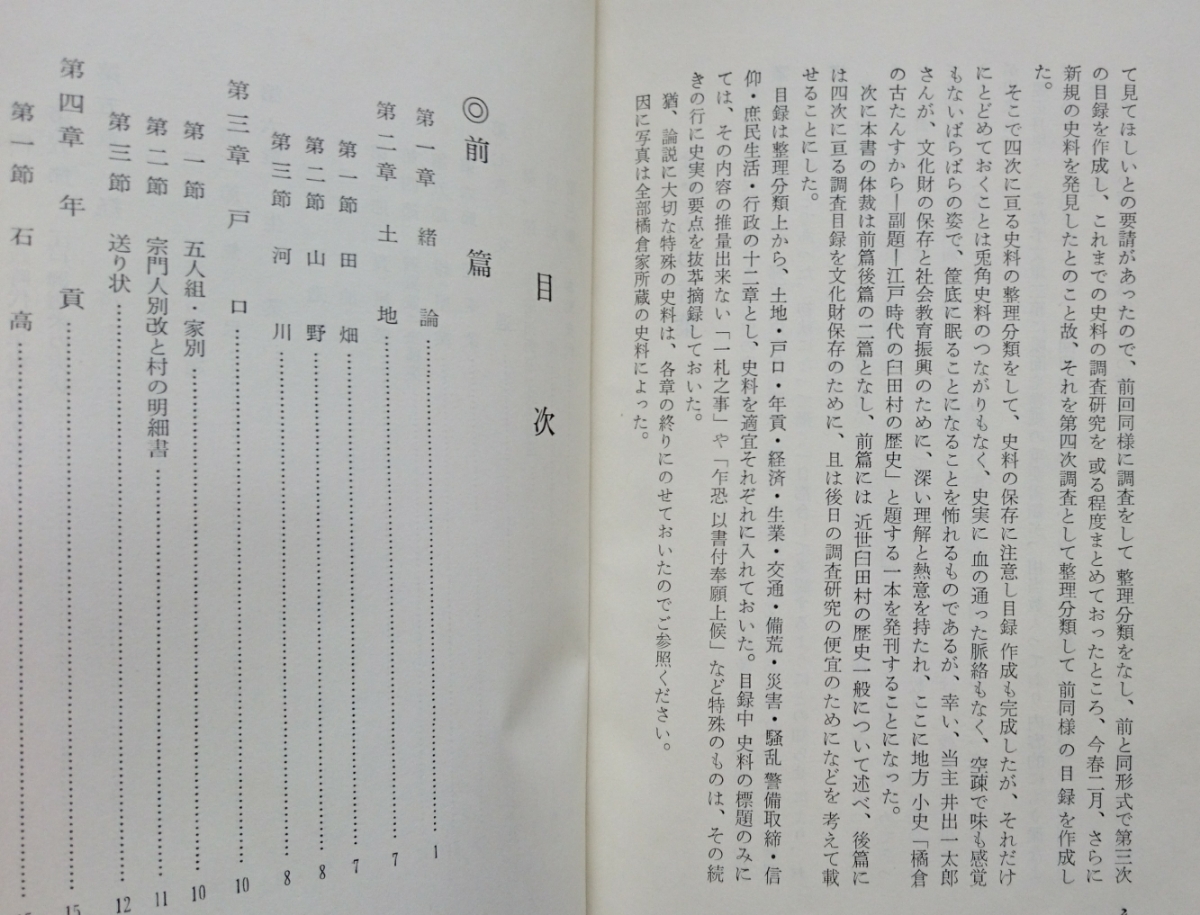 て見てほしいとの要請があったので、前回同様に調査をして 整理分類をなし、前と同形式で第三次
の目録を作成し、これまでの史料の調査研究を 或る程度まとめておったところ、今春二月、さらに
新規の史料を発見したとのこと故、それを第四次調査として整理分類して 前同様 の 目録 を 作成し
た。
そこで四次に亘る史料の整理分類をして、史料の保存に注意し目録 作成も完成したが、それだけ
にとどめておくことは兎角史料のつながりもなく、史実に 血の通った脈絡もなく、空疎で味も感覚
もないばらばらの姿で、筐底に眠ることになることを怖れるものであるが、幸い、当主 井出一太郎
さんが、文化財の保存と社会教育振興のために、深い理解と熱意を持たれ、ここに地方 小史「橘倉
の古たんすから―副題―江戸時代の臼田村の歴史」と題する一本を発刊することになった。
次に本書の体裁は前篇後篇の二篇となし、前篇には 近世臼田村の歴史一般について述べ、後篇に
は四次に亘る調査目録を文化財保存のために、且は後日の調査研究の便宜のためになどを 考えて載
せることにした。
目録は整理分類上から、土地・戸口・年貢・経済・生業・交通・備荒・災害・騒乱 警備取締・信
仰・庶民生活・行政の十二章とし、史料を適宜それぞれに入れておいた。目録中 史料の標題のみに
ては、その内容の推量出来ない「一札之事」や「乍恐 以書付奉願上候」など特殊のものは、その続
きの行に史実の要点を抜萃摘録しておいた。
猶、論説に大切な特殊の史料は、各章の終りにのせておいたのでご参照ください。
因に写真は全部橘倉家所蔵の史料によった。
目次
◎前篇
第一章 緒論……1
第二章 土地……7
第一節 田畑……7
第二節 山野……8
第三節 河川……8
第三章 戸口……10
第一節 五人組・家別……10
第二節 宗門人別改と村の明細書……11
第三節 送り状……12
第四章 年貢……15
第一節 石高……